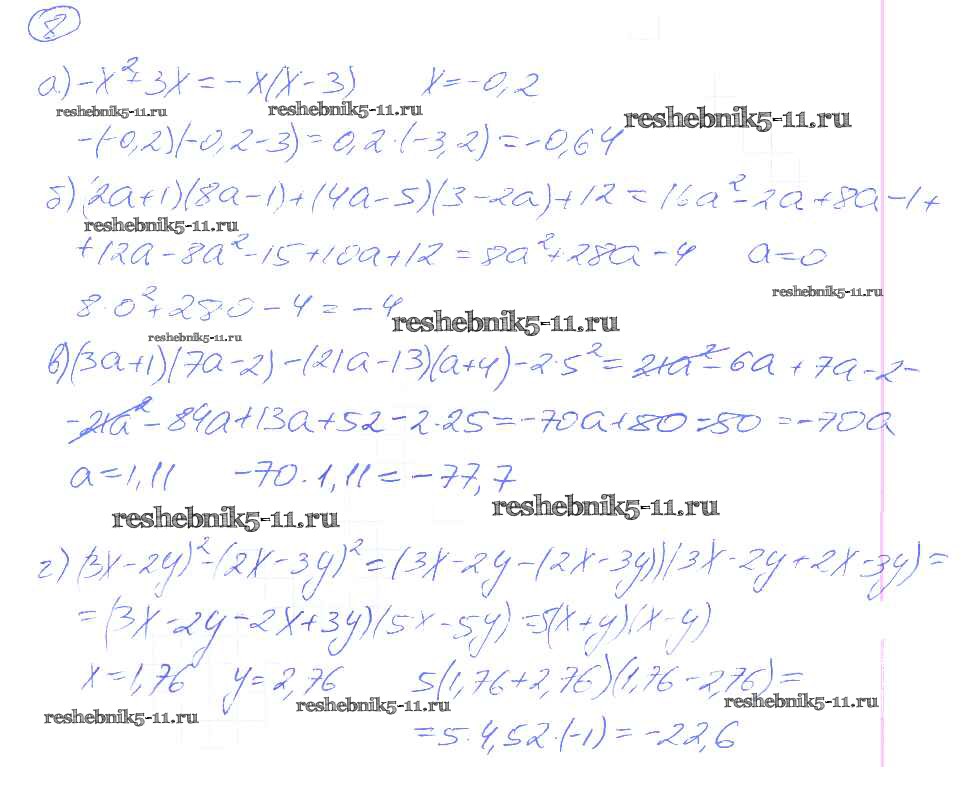 8
а) -x²+3x = -x(x-3)   x = -0,2
reshebnik5-11.ru reshebnik5-11.ru reshebnik5-11.ru
-(-0,2)(-0,2-3) = 0,2·(-3,2) = -0,64
б) (2a+1)(8a-1)+(4a-5)(3-2a)+12 = 16a²-2a+8a-1+
reshebnik5-11.ru
+12a-8a²-15+10a+12 = 8a²+28a-4   a=0
reshebnik5-11.ru
8·0²+28·0-4 = -4
reshebnik5-11.ru
reshebnik5-11.ru
в) (3a+1)(7a-2)-(21a-13)(a+4)-2·5² = 21a²-6a+7a-2-
-21a²-84a+13a+52-2·25 = -70a+80=80 = -70a
a=1,11   -70·1,11 = -77,7
reshebnik5-11.ru reshebnik5-11.ru
г) (3x-2y)²-(2x-3y)² = (3x-2y-(2x-3y))(3x-2y+2x-3y) =
= (3x-2y-2x+3y)(5x-5y) = 5(x+y)(x-y)
x=1,76   y=2,76   5(1,76+2,76)(1,76-2,76) =
reshebnik5-11.ru reshebnik5-11.ru reshebnik5-11.ru
= 5·4,52·(-1) = -22,6